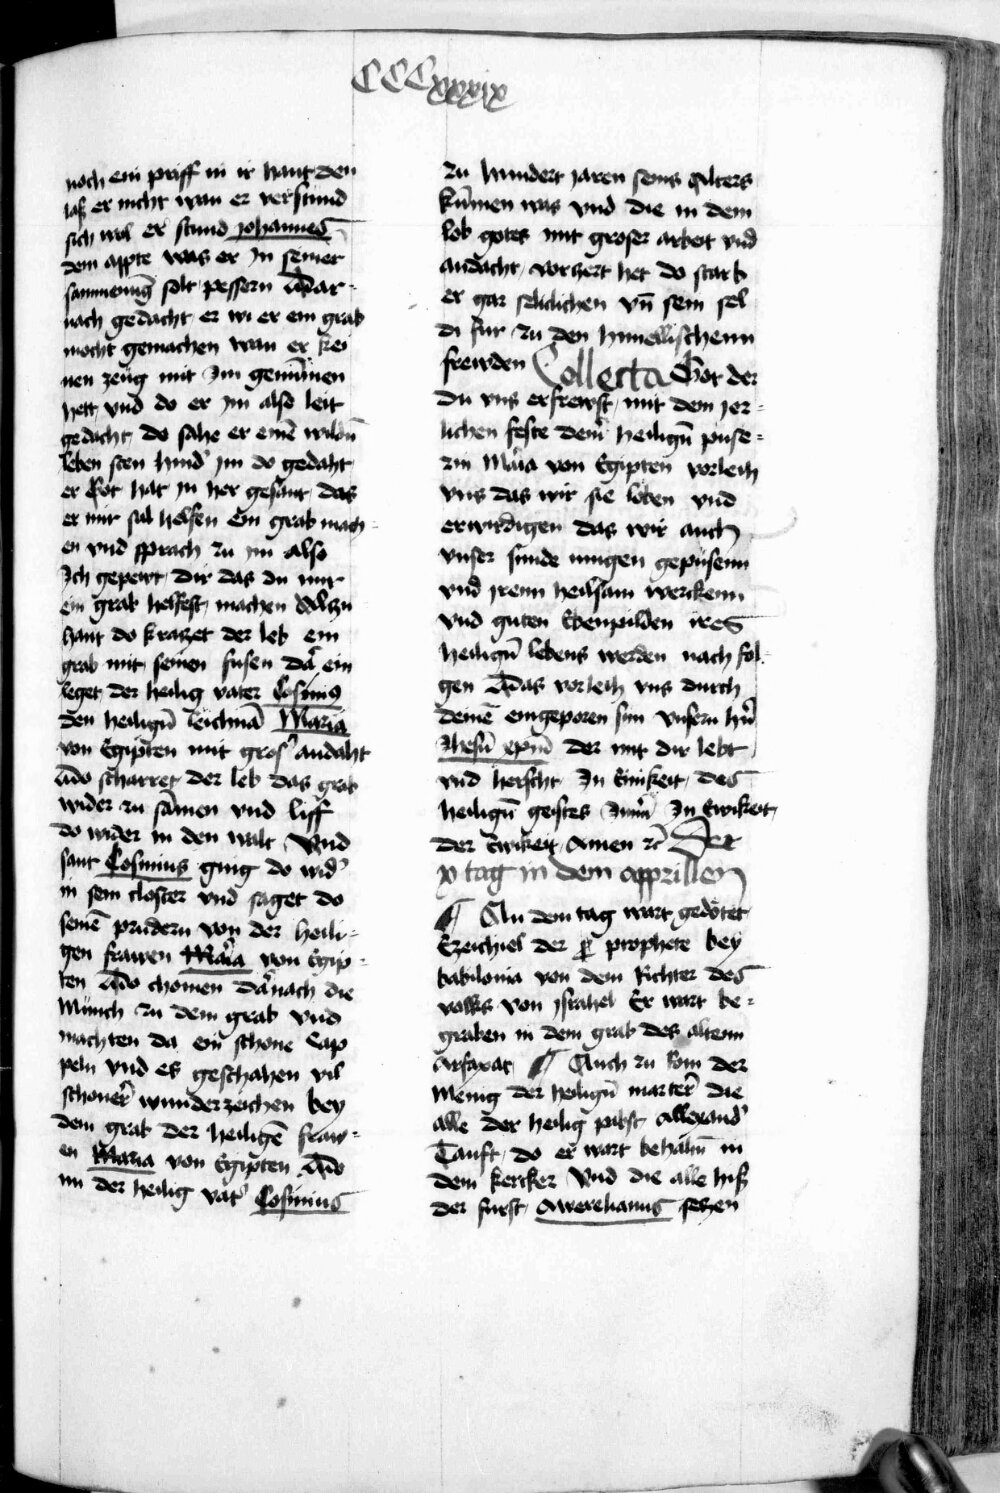 CCCxxxix
noch ein priff in ir hant den
laß er nicht wan er verstund
sich wol er stund Johannes
dem appte was er in seiner
sammenūg solt pessern Dar-
nach gedacht er wi er ein grab
mocht gemachen wan er kei
nen zeüg mit im genūmen
hett vnd do er im also leit
gedacht do sahe er einē wildn̄
leben sten hind' im do gedaht
er Got hat in her gesant das
er mir sal helfen ein grab mach-
en vnd sprach zu im also
Ich gepewt dir das du mir
ein grab helfest machen Alzu
hant do kratzet der leb ein
grab mit seinen fusen Da ein
leget der heilig vater Cosimus
den heilign̄ leichnā Maria
von Egipten mit gros' andaht
Do scharret der leb das grab
wider zu sāmen vnd liff
do wider in den walt Vnd
sant Cosimus ging do wid'
in sein closter vnd saget do
seinē prudern von der heili-
gen frawen Maria von Egip-
ten Do chomen darnach die
Münch zu dem grab vnd
machten da ein schone Cap
peln vnd es geschahen vil
schoner wunderzeichen bey
dem grab der heiligē fraw-
en Maria von Egipten Do
nu der heilig vat' Cosimus
zu hundert jaren seins alters
kumen was vnd die in dem
lob gotes mit groser arbeit vnd
andacht vorzert het do starb
er gar seliclichen vn̄ sein sel
di fur zu den himellischenn
frewden Collecta Got der
du vns erfrewst mit dem jer-
lichen feste dein' heilign̄ puse-
rin Maria von Egipten vorleih
vns das wir sie loben vnd
erwirdigen das wir auch
vnser sunde mugen gepüsenn
vnd jrenn heilsam werckenn
vnd guten Ebenpilden ires
heilign̄ lebens werden nach fol-
gen Das vorleih vns durch
deinē eingeporen sun vnsern hn̄
Jhesū xpm̄ der mit dir lebt
vnd herscht In Einikeit des
heilign̄ geistes Im̄' In Ewikeit
der Ewikeit Amen rc Der
x tag in dem apprillen
¶ An dem tag wart gedötet
Ezechiel der prophete bey
babilonia von dem Richter des
volks von Israhel Er wart be-
graben in dem grab des altenn
Arfaxat ¶ Auch zu Rom der
Menig der heilign̄ marter die
alle der heilig pabst Allexand'
Tauft do er wart behaltn̄ in
dem kercker Vnd die alle hiß
der furst Awrelianus seczen